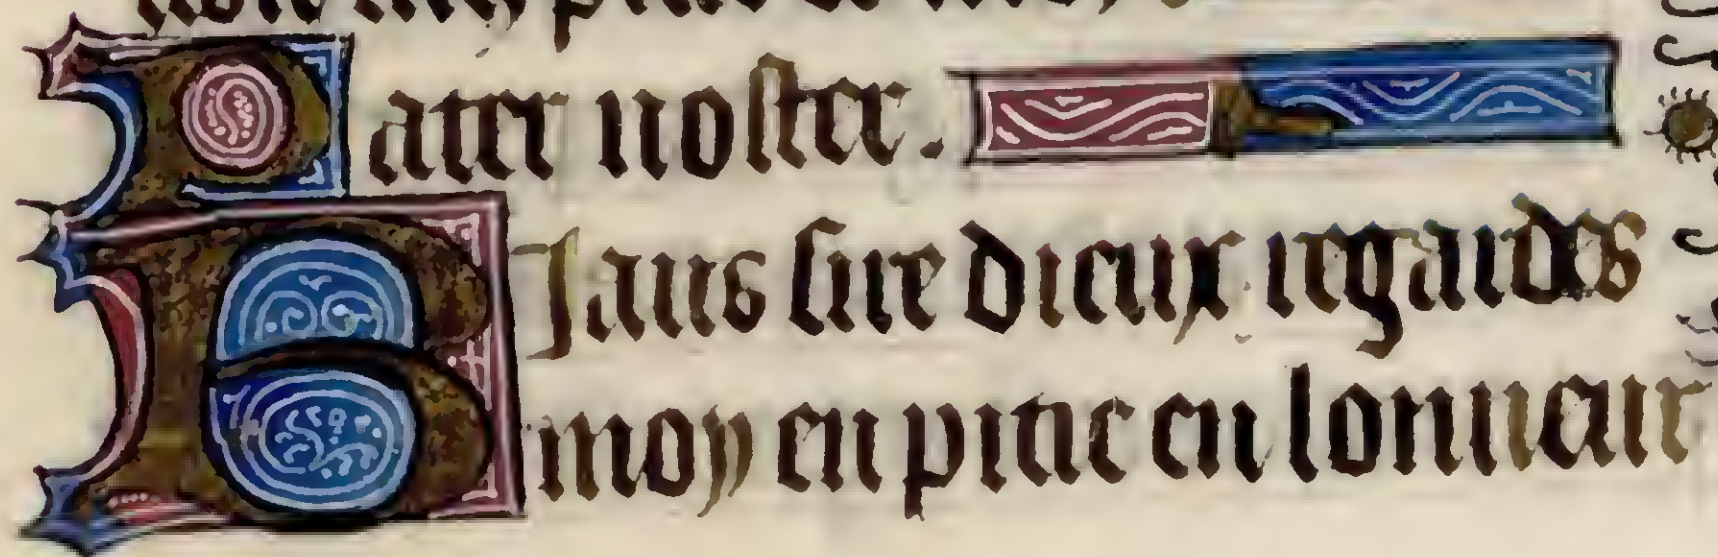 Pater noster.
Biaus sire dieux regardes
moy en pitie en lonneur